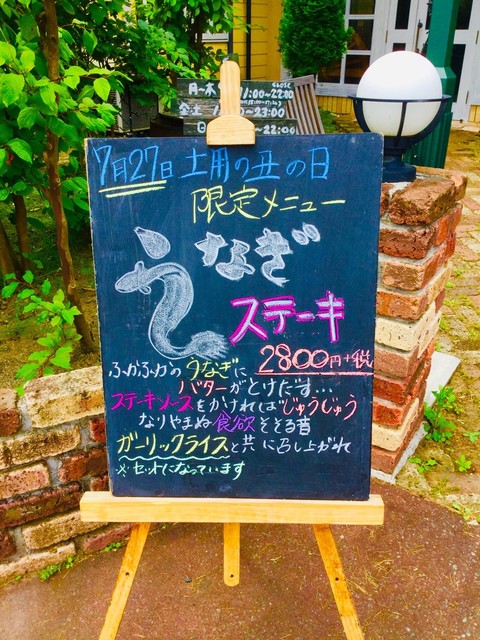 月〜木 11:00〜22:00
CLOSE
金土 〜23:00
日 〜22:00
7月27日 土用の丑の日
限定メニュー
うなぎ
ステーキ
2800円+税
ふかふかのうなぎに
バターがとけだす...
ステーキソースをかければじゅうじゅう
なりやまぬ食欲そそる音
ガーリックライスと共に召し上がれ
※セットになっています